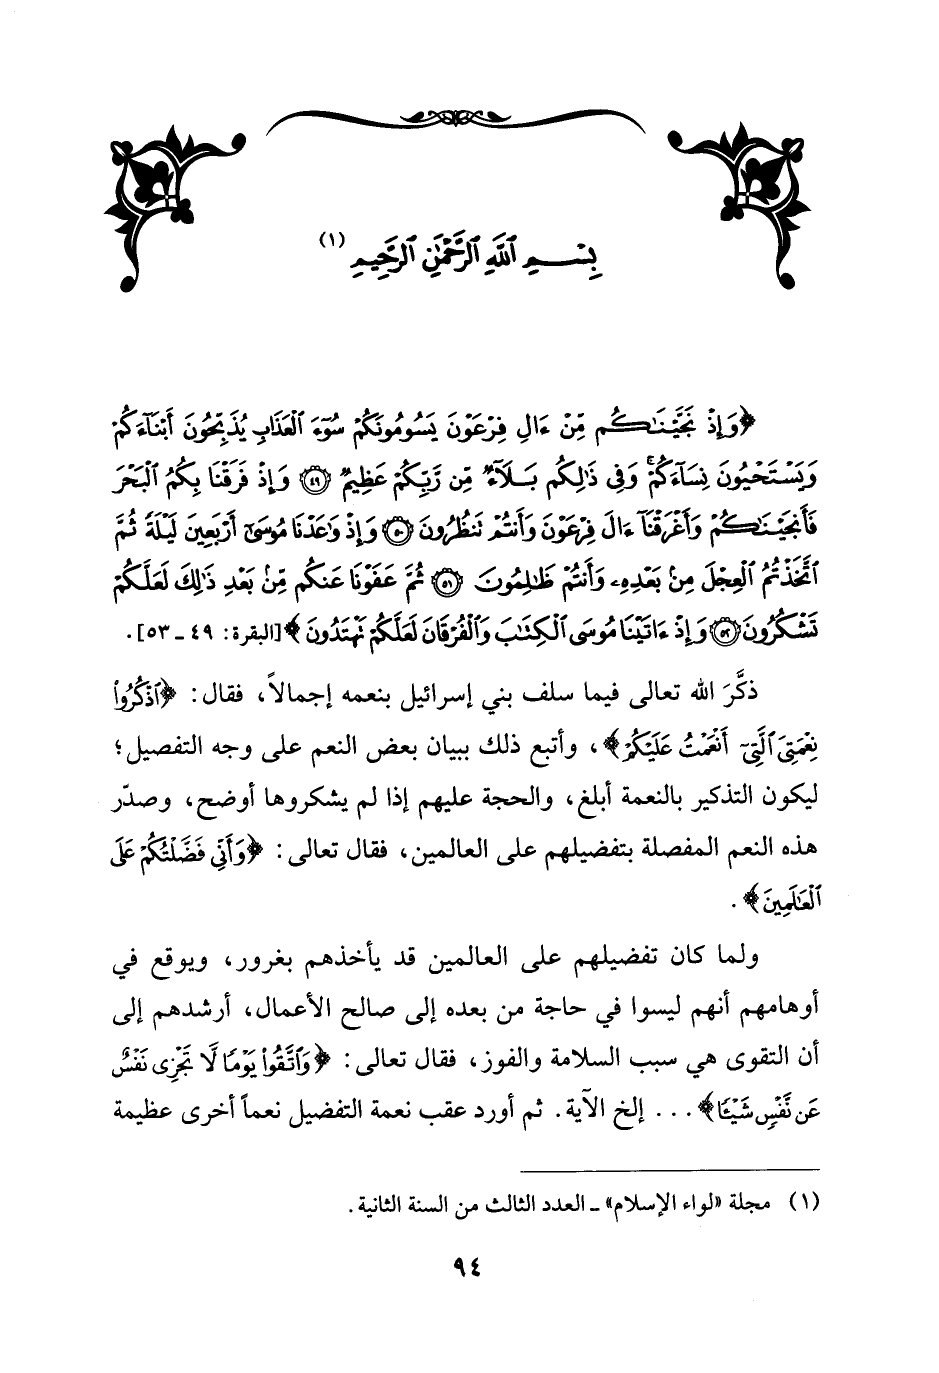 بِسْمِ ٱللَّهِ ٱلرَّحْمَٰنِ ٱلرَّحِيمِ (١)
﴿وَإِذْ نَجَّيْنَٰكُم مِّنْ ءَالِ فِرْعَوْنَ يَسُومُونَكُمْ سُوٓءَ ٱلْعَذَابِ يُذَبِّحُونَ أَبْنَآءَكُمْ
وَيَسْتَحْيُونَ نِسَآءَكُمْ ۚ وَفِى ذَٰلِكُم بَلَآءٌ مِّن رَّبِّكُمْ عَظِيمٌ ﴿٤٩﴾ وَإِذْ فَرَقْنَا بِكُمُ ٱلْبَحْرَ
فَأَنجَيْنَٰكُمْ وَأَغْرَقْنَآ ءَالَ فِرْعَوْنَ وَأَنتُمْ تَنظُرُونَ ﴿٥٠﴾ وَإِذْ وَٰعَدْنَا مُوسَىٰٓ أَرْبَعِينَ لَيْلَةً ثُمَّ
ٱتَّخَذْتُمُ ٱلْعِجْلَ مِنۢ بَعْدِهِۦ وَأَنتُمْ ظَٰلِمُونَ ﴿٥١﴾ ثُمَّ عَفَوْنَا عَنكُم مِّنۢ بَعْدِ ذَٰلِكَ لَعَلَّكُمْ
تَشْكُرُونَ ﴿٥٢﴾ وَإِذْ ءَاتَيْنَا مُوسَى ٱلْكِتَٰبَ وَٱلْفُرْقَانَ لَعَلَّكُمْ تَهْتَدُونَ﴾ [البقرة: ٤٩ ـ ٥٣].
ذكَّرَ الله تعالى فيما سلف بني إسرائيل بنعمه إجمالاً، فقال: ﴿ٱذْكُرُوا۟
نِعْمَتِىَ ٱلَّتِىٓ أَنْعَمْتُ عَلَيْكُمْ﴾، وأتبع ذلك ببيان بعض النعم على وجه التفصيل؛
ليكون التذكير بالنعمة أبلغ، والحجة عليهم إذا لم يشكروها أوضح، وصدّر
هذه النعم المفصلة بتفضيلهم على العالمين، فقال تعالى: ﴿وَأَنِّى فَضَّلْتُكُمْ عَلَى
ٱلْعَٰلَمِينَ﴾.
ولما كان تفضيلهم على العالمين قد يأخذهم بغرور، ويوقع في
أوهامهم أنهم ليسوا في حاجة من بعده إلى صالح الأعمال، أرشدهم إلى
أن التقوى هي سبب السلامة والفوز، فقال تعالى: ﴿وَٱتَّقُوا۟ يَوْمًا لَّا تَجْزِى نَفْسٌ
عَن نَّفْسٍ شَيْـًٔا﴾ . . . إلخ الآية. ثم أورد عقب نعمة التفضيل نعماً أخرى عظيمة
(١) مجلة «لواء الإسلام» ـ العدد الثالث من السنة الثانية.
٩٤